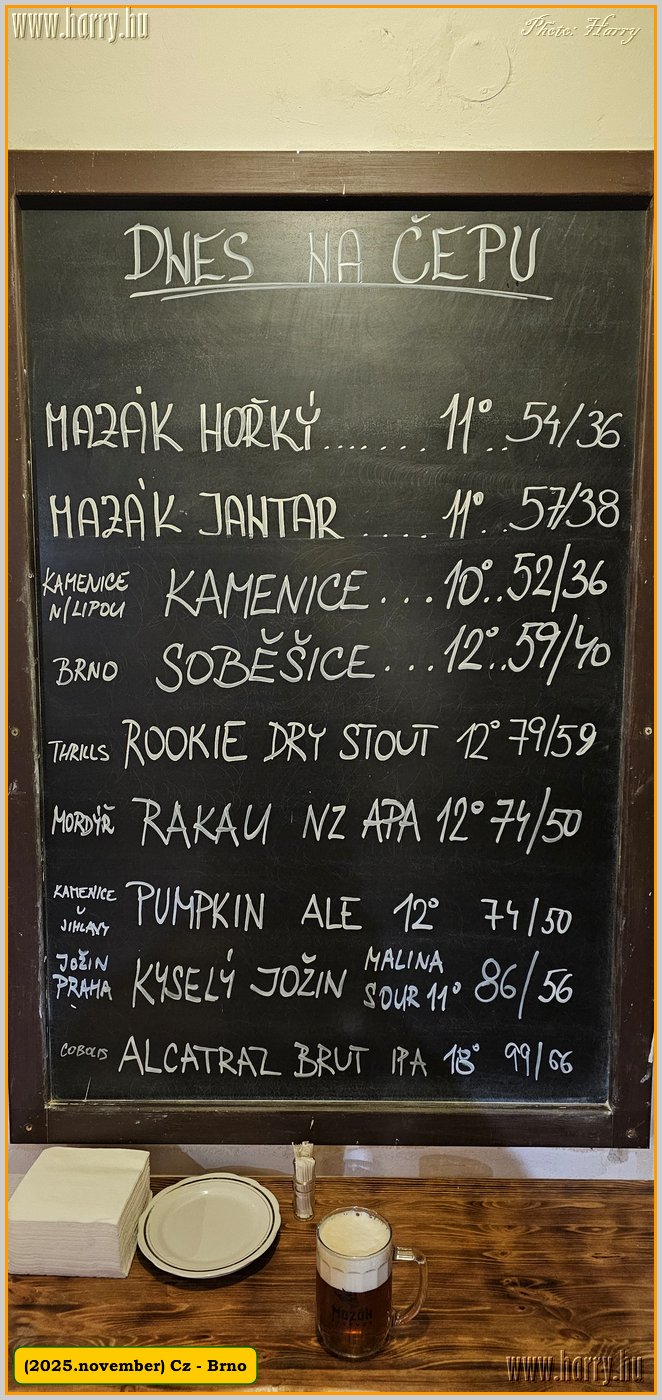 www.harry.hu
Photo: Harry
DNES NA ČEPU
MAZÁK HOŘKÝ....... 11°..54/36
MAZÁK JANTAR .... 11°..57/38
KAMENICE
N/LIPOU
KAMENICE... 10°..52/36
BRNO SOBĚŠICE... 12°..59/40
THRILLS ROOKIE DRY STOUT 12° 79/59
MORDÝŘ RAKAU NZ APA 12° 74/50
KAMENICE
U
JIHLAVY
PUMPKIN ALE 12° 74/50
JOŽIN
PRAHA
KYSELÝ JOŽIN
MALINA
SOUR 11°
86/56
COBOLIS ALCATRAZ BRUT IPA 18° 99/66
MAZÁK
(2025.november) Cz - Brno
www.harry.hu